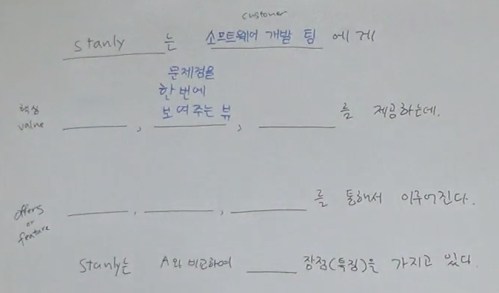 customer
stanly 는 소프트웨어 개발 팀 에게
문제점을
한 번에
보여주는 뷰
핵심
value ______, ______, ______ 를 제공하는데.
offers
or
feature ______, ______, ______ 를 통해서 이루어진다.
Stanly는 A와 비교하여 ______ 장점(특징)을 가지고 있다.